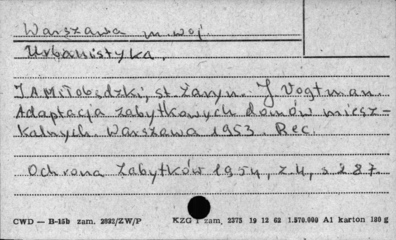 Warszawa m. woj.
Urbanistyka.
J. A. Miłobędzki, St. Żaryn. J. Vogtman.
Adaptacja zabytkowych domów miesz-
kalnych. Warszawa 1953. Rec.
Ochrona Zabytków 1954, z. 4, s. 287
CWD — B-15b zam. 2832/ZW/P KZG 1 zam. 2275 19 12 62 1.570.000 A1 karton 180 g